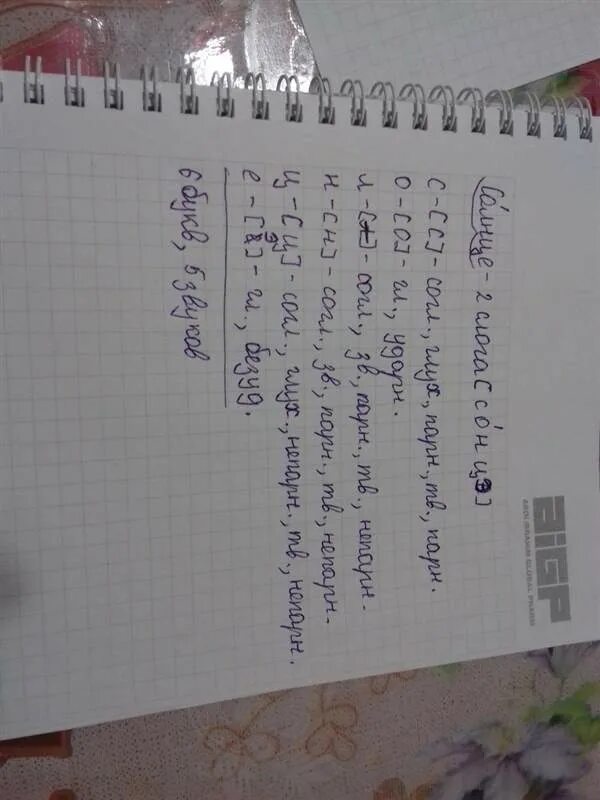 Со́лнце - 2 слога [со́нцэ]
с - [с] - согл., глух., парн., тв., парн.
о - [о] - гл., ударн.
л - [-] - согл., зв., парн., тв., непарн.
н - [н] - согл., зв., парн., тв., непарн.
ц - [ц] - согл., глух., непарн., тв., непарн.
е - [э] - гл., безуд.
6 букв, 5 звуков
AIGP
ABDI IBRAHIM GLOBAL PHARM